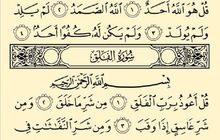 قُلْ هُوَ ٱللَّهُ أَحَدٌ ١ ٱللَّهُ ٱلصَّمَدُ ٢ لَمْ يَلِدْ
وَلَمْ يُولَدْ ٣ وَلَمْ يَكُن لَّهُۥ كُفُوًا أَحَدٌۢ ٤
سُورَةُ الفَلَقِ
بِسْمِ ٱللَّهِ ٱلرَّحْمَٰنِ ٱلرَّحِيمِ
قُلْ أَعُوذُ بِرَبِّ ٱلْفَلَقِ ١ مِن شَرِّ مَا خَلَقَ ٢ وَمِن شَرِّ
غَاسِقٍ إِذَا وَقَبَ ٣ وَمِن شَرِّ ٱلنَّفَّٰثَٰتِ فِى